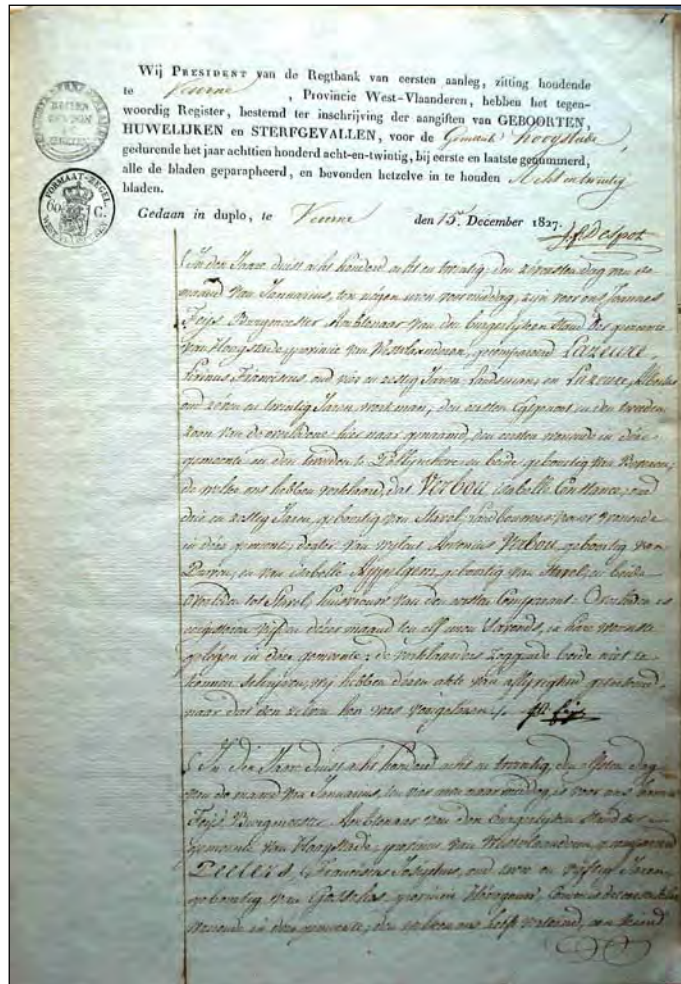 Wij PRESIDENT van de Regtbank van eersten aanleg, zitting houdende
te Veurne , Provincie West-Vlaanderen, hebben het tegen-
woordig Register, bestemd ter inschrijving der aangiften van GEBOORTEN,
HUWELIJKEN en STERFGEVALLEN, voor de Gemeente hoogstade,
gedurende het jaar achttien honderd acht-en-twintig, bij eerste en laatste genummerd,
alle de bladen geparapheerd, en bevonden hetzelve in te houden Acht en twintig
bladen.
Gedaan in duplo, te Veurne den 15e. December 1827.
FORMAAT-ZEGEL
60 C.
In den Jaare duist acht honderd acht en twintig, den zevensten dag van de
maand van Januarius, ten negen uren voormiddag, zijn voor ons Joannes
Feijs Burgmeester Ambtenaar van den burgerlijken stand der gemeente
van Hoogstade, provincie van Westvlaenderen, gecompareerd Lazeure,
Franciscus oud vier en zestig Jaren, Landsman, en Lazeure,
oud zeven en twintig Jaren, werkman, den eersten en den tweeden
zoon van de overledene hier naar genaamd, den eersten wonende in deze
gemeente en den tweeden te Pollinchove en beide geboortig van
de welke ons hebben verklaard, dat Verbou, isabelle Constance, oud
drie en zestig Jaren, geboortig van Stavel, wonende
in deze gemeente, dogter van wijlent Verbou, geboortig van
en van isabelle geboortig van Stavel, en beide
overleden tot Stavel, huisvrouw van den eersten Comparant. Overleden is
eergisteren vijf en dezer maand ten elf uren 's avonds, in hare woonste
gelegen in deze gemeente; de verklaarders zeggende beide niet te
konnen schrijven, wij hebben dezen akte van geteekend,
naar dat den zelven hen was voorgelesen.
In den Jaare duist acht honderd acht en twintig, den dag
van de maand van Januarius, ten vier uren naarmiddag, is voor ons
Feijs Burgmeester Ambtenaar van den burgerlijken stand der
gemeente van Hoogstade, provincie van Westvlaenderen, gecompareerd
Franciscus Josephus, oud twee en vijftig Jaren,
geboortig van provincie Henegouw,
wonende in deze gemeente, den welken ons heeft vertoond, een kind